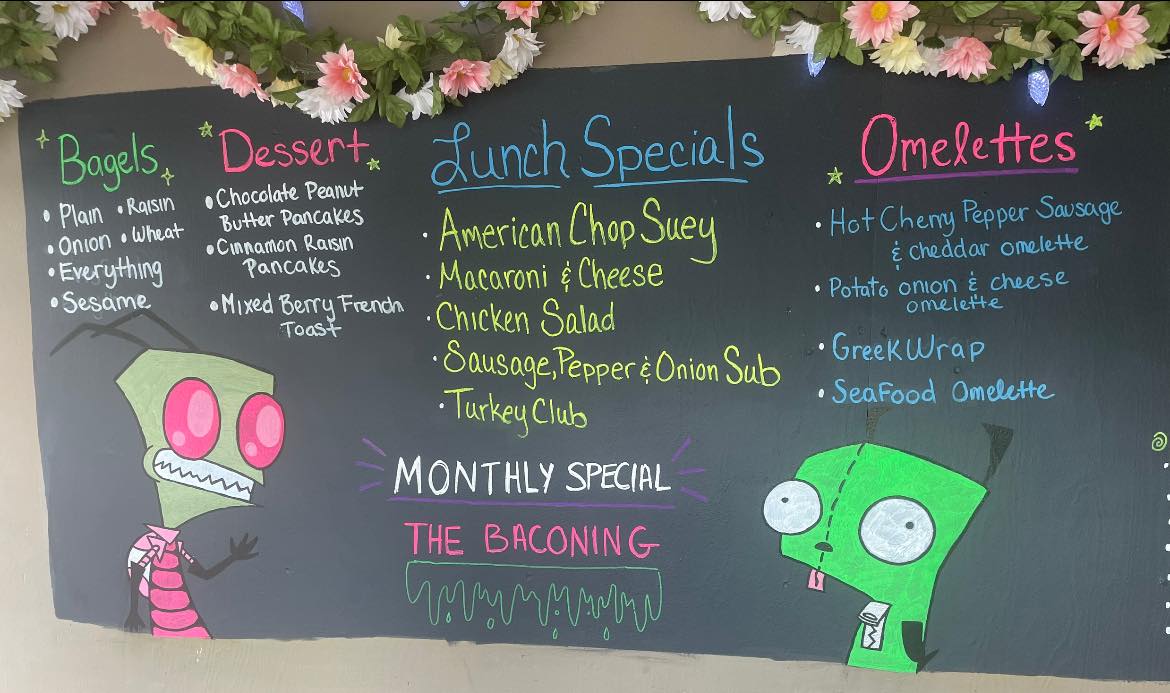 Bagels
• Plain • Raisin
• Onion • Wheat
• Everything
• Sesame
Dessert
• Chocolate Peanut
Butter Pancakes
• Cinnamon Raisin
Pancakes
• Mixed Berry French
Toast
Lunch Specials
· American Chop Suey
· Macaroni & Cheese
· Chicken Salad
· Sausage, Pepper & Onion Sub
· Turkey Club
MONTHLY SPECIAL
THE BACONING
Omelettes
• Hot Cherry Pepper Sausage
& cheddar omelette
• Potato onion & cheese
omelette
• Greek Wrap
• Seafood Omelette